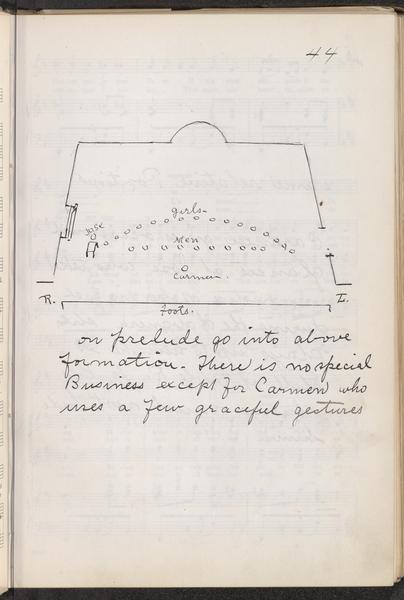 44
girls-
Jose
Men
Carmen.
R.
L.
Foots.
on prelude go into above
formation. There is no special
Business except for Carmen who
uses a few graceful gestures